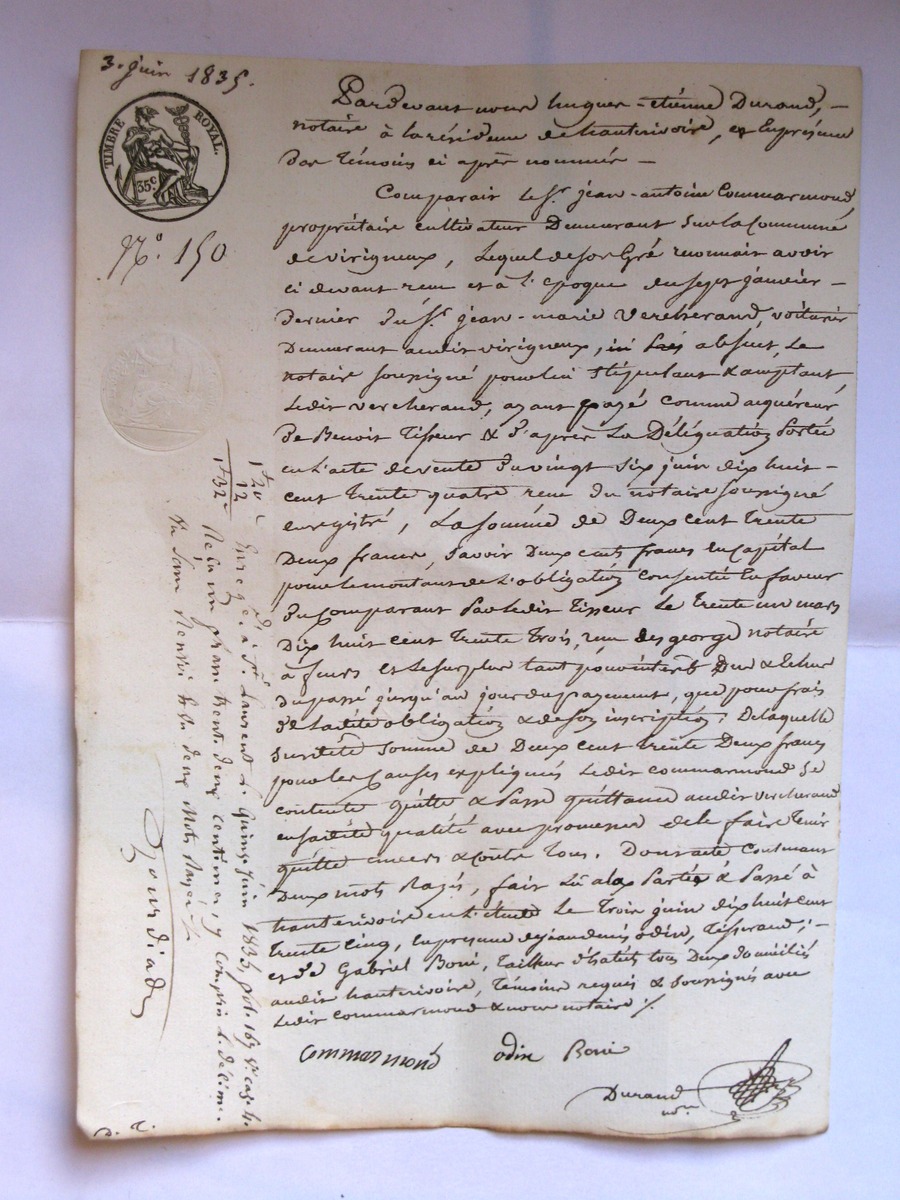 3. juin 1835.
TIMBRE ROYAL.
35c
N.º 150
Pardevant nous hugues-étienne Durand, -
notaire à la résidence de hauterivoire, et En présence
des témoins ci après nommés -
Comparait le Sr. jean-antoine Commarmond,
propriétaire cultivateur Demeurant Sur la Commune
de virigneux, Lequel de son Gré reconnait avoir
ci devant reçu et à l'époque du sept janvier -
dernier du Sr. jean-marie Vercherand, voiturier
Demeurant audit virigneux, ici absent, Le
notaire soussigné pour lui stipulant & acceptant,
Ledit vercherand, ayant payé comme acquéreur
de Benoit Tisseur & d'après La Délégation Portée
En L'acte de vente du vingt six juin dix huit -
cent trente quatre reçu du notaire soussigné
enregistré, La somme de Deux cent trente
Deux francs, savoir Deux cents francs En capital
pour le montant de L'obligation consentie En faveur
du Comparant Par ledit Tisseur Le trente un mars
Dix huit cent trente trois, reçu des george notaire
à feurs et Le surplus tant pour intérêts Dus & Echus
du passé jusqu'au jour du payement, que pour frais
de Ladite obligation & de son inscription. De laquelle
Susdite somme de Deux cent trente Deux francs
pour les Causes expliquées Ledit commarmond Se
contente quitte & Passe quittance audit vercherand
en sadite qualité avec promesse de le faire tenir
quitte envers & contre tous. Dont acte contenant
Deux mots Rayés, fait Lu aux Parties & Passé à
hauterivoire en L'étude Le trois juin dix huit cent
trente cinq, En présence de jean denis odin, Tisserand, -
et de Gabriel Boni, tailleur d'habits tous Deux domiciliés
audit hauterivoire, témoins requis & soussignés avec
Ledit commarmond & nous notaire ./.
Commarmond odin Boni
Durand
nore
1f 20c
12
1f 32c
Enregé. à St. Laurent le quinze juin 1835, fol. 167 vo. case 4.
Reçu un franc trente deux centimes, y compris le décime.
Gourdiad